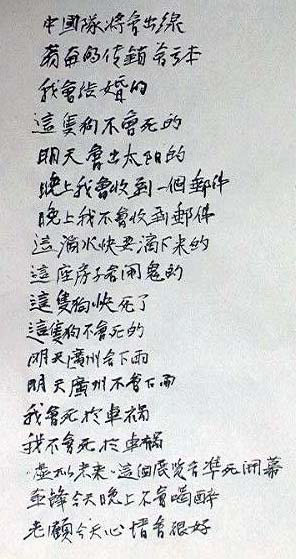 中國隊將會出線
翁每的传銷会亏本
我會结婚的
這隻狗不會死的
明天會出太阳的
晚上我會收到一個郵件
晚上我不會收到郵件
這滴水快要滴下来的
這座房子会閙鬼的
這隻狗快死了
這隻狗不會死的
明天廣州会下雨
明天廣州不會下雨
我會死於車禍
我不會死於車禍
虚拟未来 這個展览会準时開幕
亚鋒今天晚上不會喝醉
老顧今天心情會很好